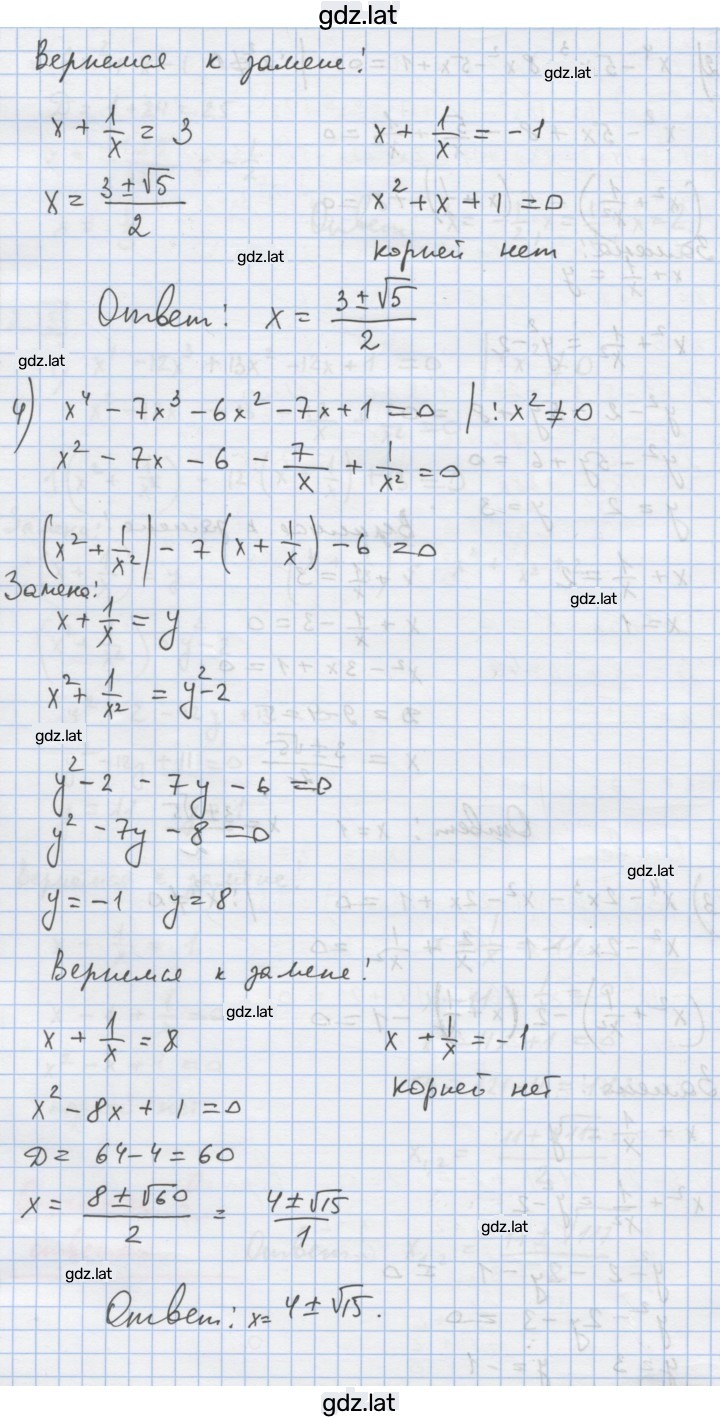 gdz.lat
Вернемся к замене!
gdz.lat
x + 1/x = 3
x + 1/x = -1
x = (3 ± √5)/2
x² + x + 1 = 0
корней нет
gdz.lat
Ответ: x = (3 ± √5)/2
gdz.lat
4) x⁴ - 7x³ - 6x² - 7x + 1 = 0 | : x² ≠ 0
x² - 7x - 6 - 7/x + 1/x² = 0
(x² + 1/x²) - 7(x + 1/x) - 6 = 0
Замена:
gdz.lat
x + 1/x = y
x² + 1/x² = y² - 2
gdz.lat
y² - 2 - 7y - 6 = 0
y² - 7y - 8 = 0
gdz.lat
y = -1 y = 8
Вернемся к замене!
gdz.lat
x + 1/x = 8
x + 1/x = -1
корней нет
x² - 8x + 1 = 0
D = 64 - 4 = 60
x = (8 ± √60)/2 = (4 ± √15)/1
gdz.lat
gdz.lat
Ответ: x = 4 ± √15.
gdz.lat